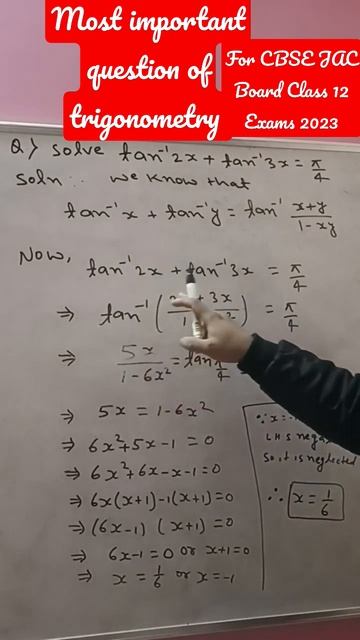 Most important
question of
trigonometry
For CBSE JAC
Board Class 12
Exams 2023
Q) Solve tan⁻¹2x + tan⁻¹3x = π/4
Soln:. We know that
tan⁻¹x + tan⁻¹y = tan⁻¹ (x+y)/(1-xy)
Now,
tan⁻¹2x + tan⁻¹3x = π/4
⇒ tan⁻¹( + 3x / 1 ) = π/4
⇒ 5x/(1-6x²) = tan π/4
⇒ 5x = 1-6x²
⇒ 6x²+5x-1 = 0
⇒ 6x²+6x-x-1=0
⇒ 6x(x+1)-1(x+1)=0
⇒ (6x-1) (x+1) = 0
⇒ 6x-1=0 or x+1=0
⇒ x = 1/6 or x=-1
∵ x=-
LHS nega
So it is neglected
∴ x = 1/6